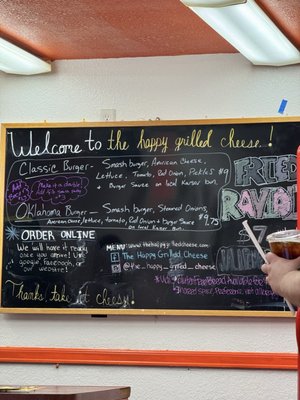 Welcome to the happy grilled cheese!
Classic Burger - Smash burger, American Cheese,
Lettuce, Tomato, Red Onion, Pickles $9
& Burger Sauce on local Kaiser bun.
Make it a double
Oklahoma Burger - Smash burger, Steamed Onions,
American Cheese, lettuce, tomato, Red Onion & Burger Sauce
on local Kaiser Bun. $9.75
FRIED
RAVIOLI
$7
ORDER ONLINE
We will have it ready
once you arrive! Via
google, facebook, or
our website!
MENU: www.thehappygrilledcheese.com
The Happy Grilled Cheese
@the_happy_grilled_cheese
Thanks, take it cheesy!